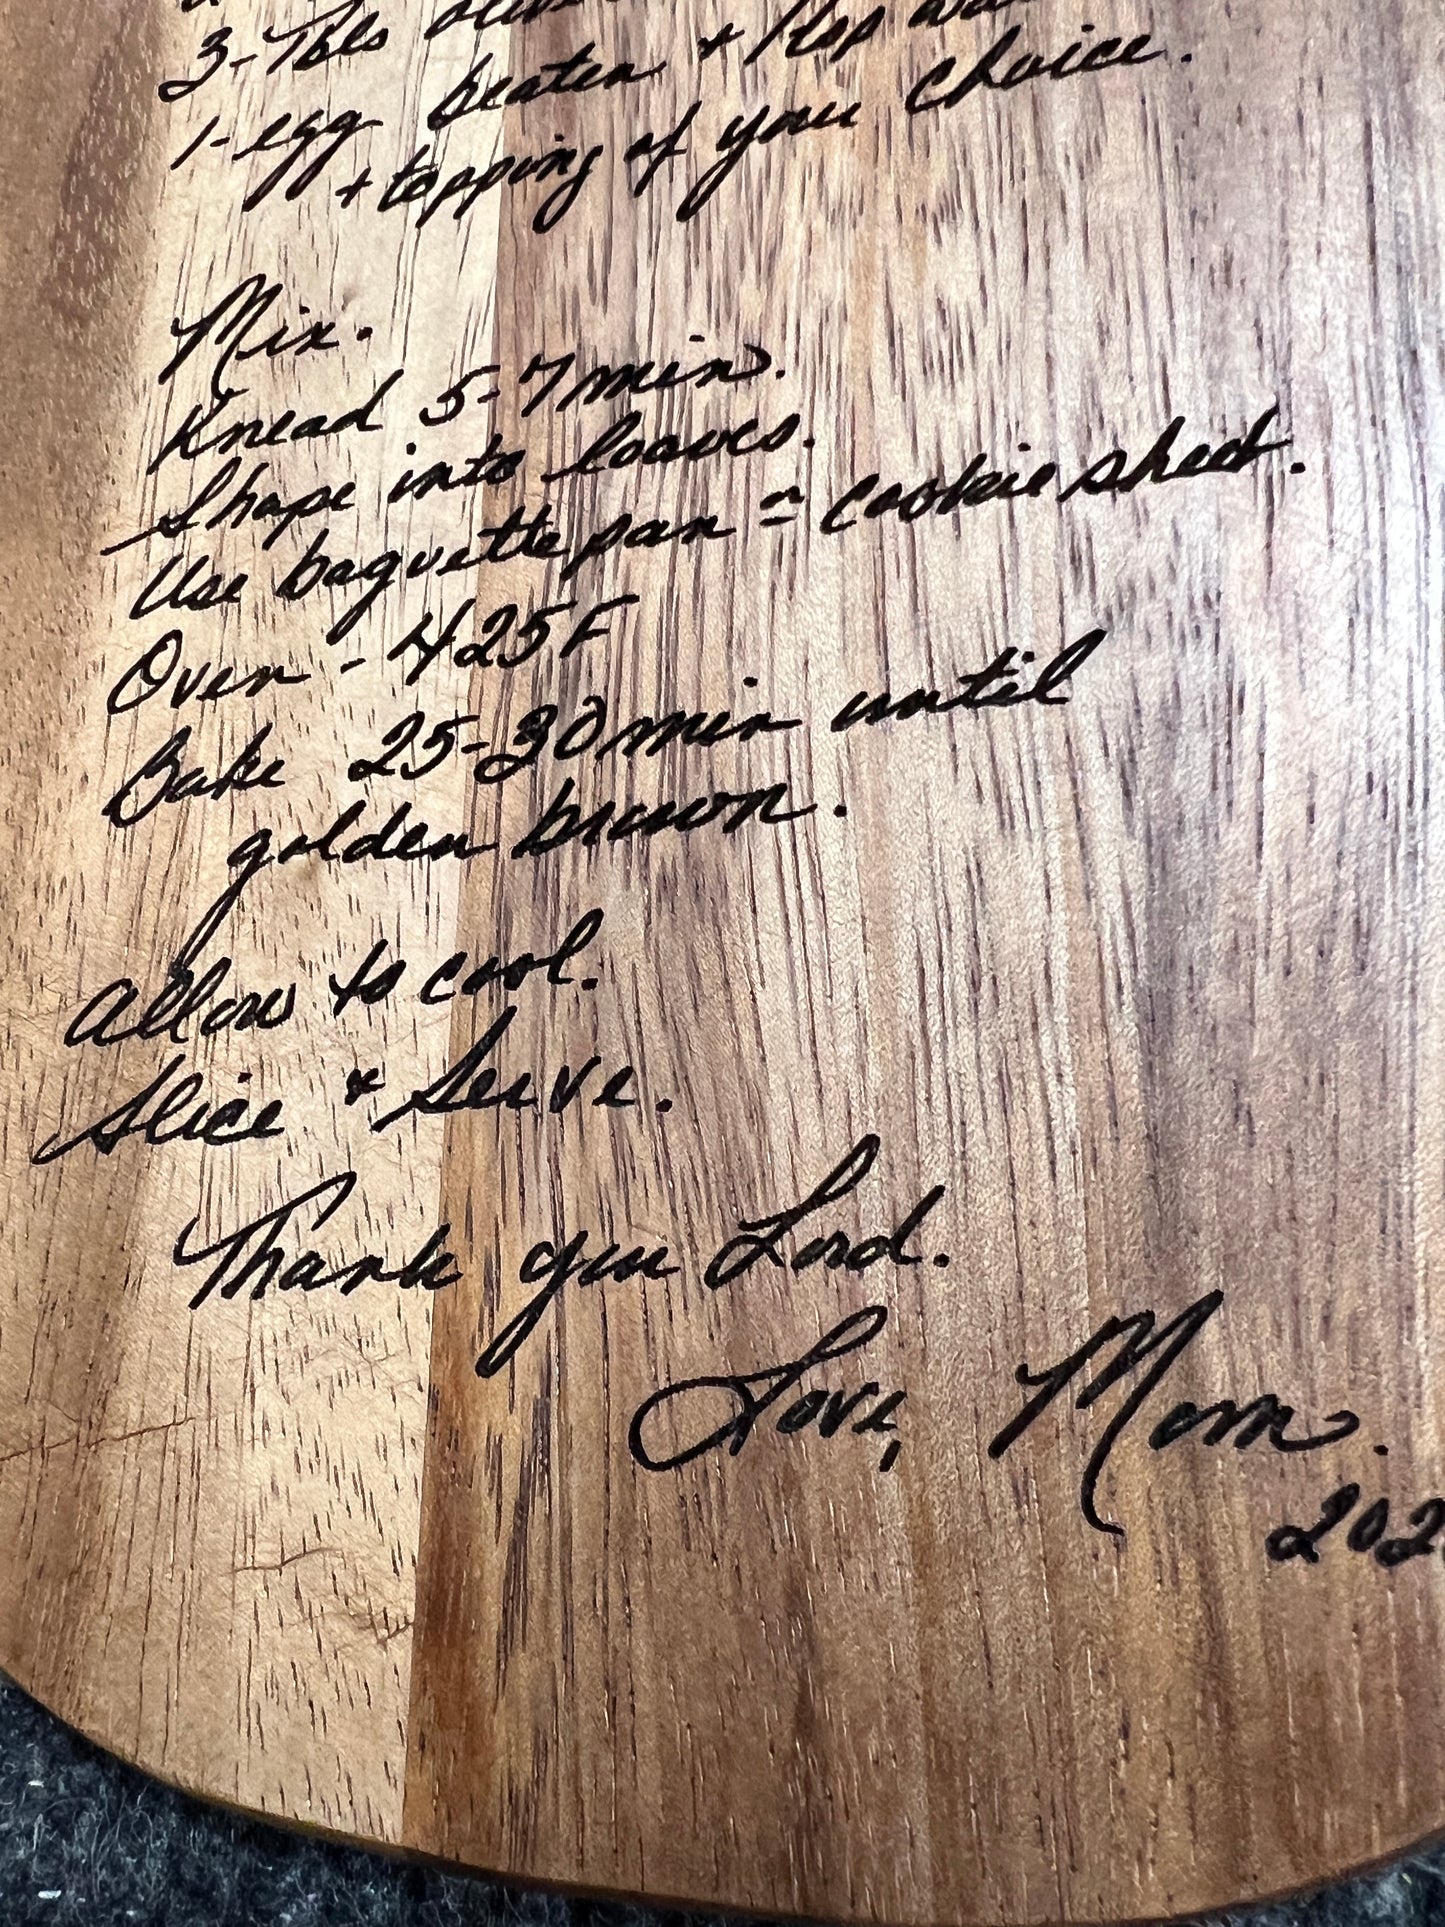 3-Tbls olive
1-egg beaten + 1 tsp
+ topping of your choice.
Mix.
Knead 5-7 min.
Shape into loaves.
Use baguette pan or cookie sheet.
Oven - 425F
Bake 25-30 min until
golden brown.
Allow to cool.
Slice + Serve.
Thank you Lord.
Love, Mom.
202